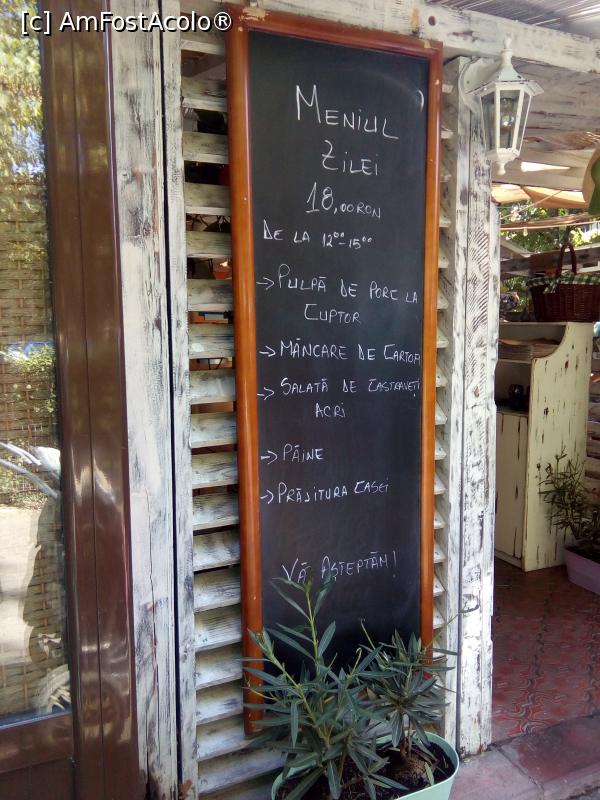 [c] AmFostAcolo®
MENIUL
ZILEI
18,00 RON
DE LA 12⁰⁰-15⁰⁰
→ PULPĂ DE PORC LA
CUPTOR
→ MÂNCARE DE CARTOFI
→ SALATĂ DE CASTRAVEȚI
ACRI
→ PÂINE
→ PRĂJITURA CASEI
VĂ AȘTEPTĂM!